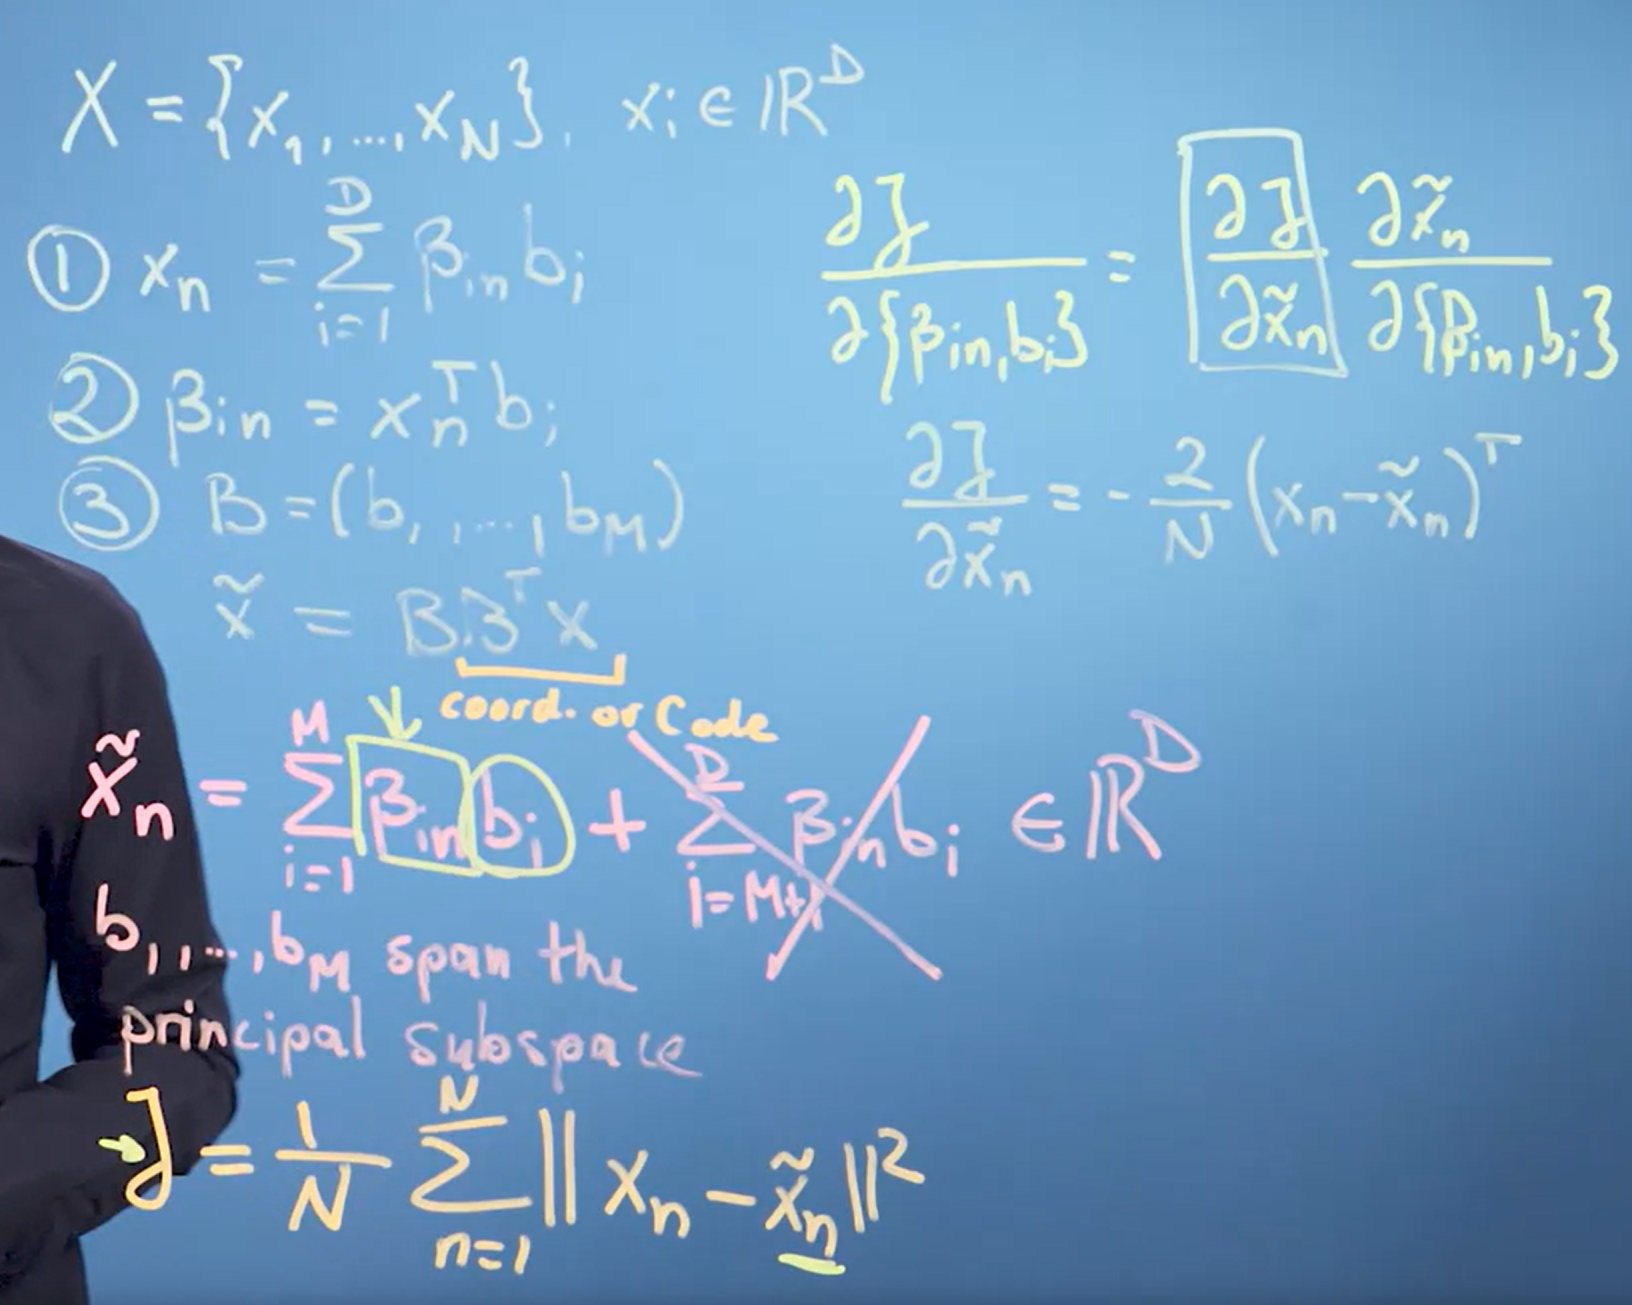 X = {x₁, ..., x_N}, xᵢ ∈ ℝᴰ
① xₙ = ∑_{i=1}^{D} βᵢₙ bᵢ
② βᵢₙ = xₙᵀ bᵢ
③ B = (b₁, ..., b_M)
x̃ = B Bᵀ x
coord. or Code
x̃ₙ = ∑_{i=1}^{M} βᵢₙ bᵢ + ∑_{i=M+1}^{D} βᵢₙ bᵢ ∈ ℝᴰ
b₁, ..., b_M span the
principal subspace
J = 1/N ∑_{n=1}^{N} || xₙ - x̃ₙ ||²
∂J/∂{βᵢₙ, bᵢ} = ∂J/∂x̃ₙ ∂x̃ₙ/∂{βᵢₙ, bᵢ}
∂J/∂x̃ₙ = - 2/N (xₙ - x̃ₙ)ᵀ